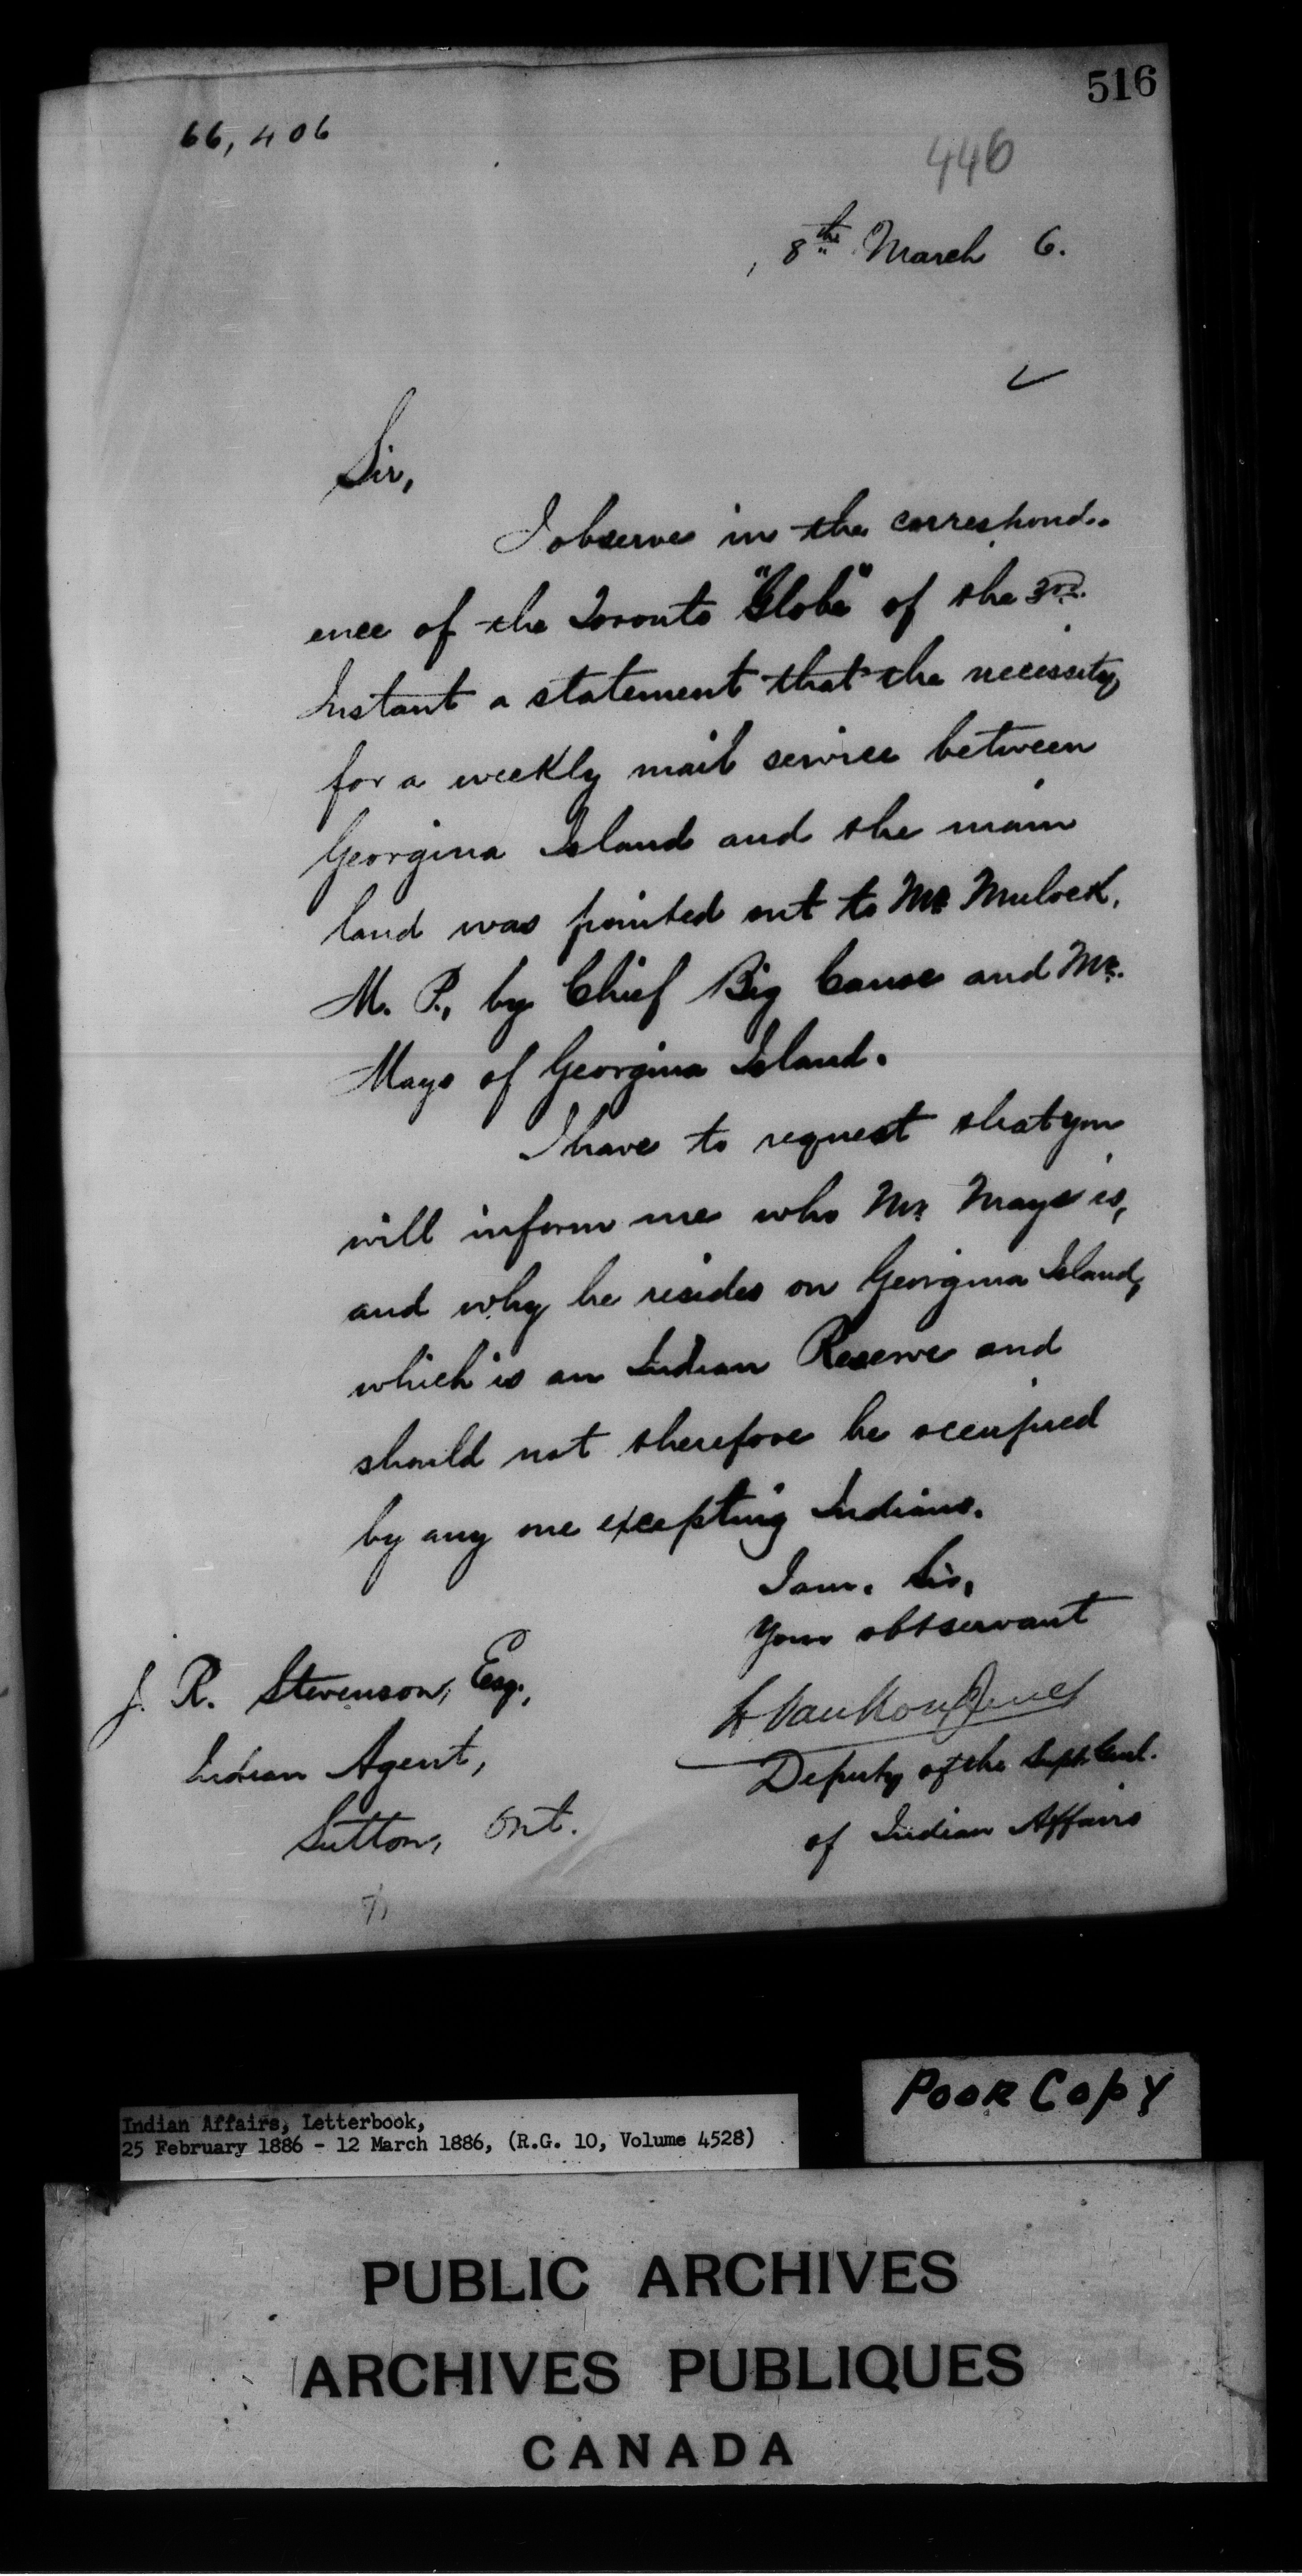 516
66,406
446
8th March 6.
Sir,
I observe in the correspond..
ence of the Toronto "Globe" of the 3rd.
Instant a statement that the necessity
for a weekly mail service between
Georgina Island and the main
land was pointed out to Mr Mulock,
M. P., by Chief Big Canoe and Mr.
Mays of Georgina Island.
I have to request that you
will inform me who Mr. Mays is,
and why he resides on Georgina Island,
which is an Indian Reserve and
should not therefore be occupied
by any one excepting Indians.
I am. Sir,
Your obt servant
L VanKoughnet
Deputy of the Supt. Genl.
of Indian Affairs
J. R. Stevenson, Esq.,
Indian Agent,
Sutton, Ont.
Poor Copy
Indian Affairs, Letterbook,
25 February 1886 - 12 March 1886, (R.G. 10, Volume 4528)
PUBLIC ARCHIVES
ARCHIVES PUBLIQUES
CANADA